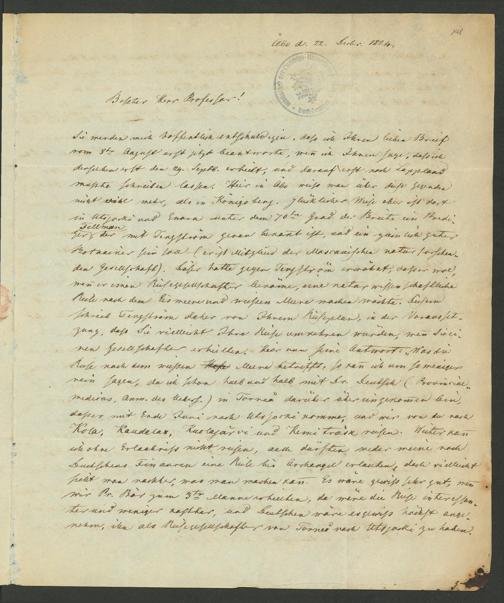 Åbo d. 22. Decbr. 1824.
Bester Herr Professor!
Sie werden mich hoffentlich entschuldigen, dass ich Ihren lieben Brief
vom 8ten August erst jetzt beantworte, wenn ich Ihnen sage, dass ich
denselben erst den 29. Septb. erhielt, und darauf erst nach Lappland
musste schreiben lassen. Hier in Åbo weiss man über diese Gegenden
nicht mehr, als in Königsberg. Glücklicher Weise aber ist dort
in Utsjocki und Enare unter dem 70ten Grad der Breite ein Predi
ger der mit Tengström genau bekannt ist, und ein ziemlich guter
Botaniker sein soll (er ist Mitglied der Moscauischen naturforschen
den Gesellschaft). Dieser hatte gegen Tengström erwähnt, dass er wol,
wenn er einen Reisegesellschafter bekäme, eine naturwissenschaftliche
Reise nach dem Eismeere und weissen Meere machen möchte. Indem
schrieb Tengström daher von Ihrem Reiseplan, in der Vorausset-
zung, dass Sie vielleicht Ihre Reise umkehren würden, wenn Sie ei-
nen Gesellschafter erhielten. Hier nun seine Antwort: Was die
Reise nach dem weissen Meere betrifft, so kann ich um so weniger
nein sagen, da ich schon halb und halb mit Dr. Deutsch (Provincial
medicus, Anm. des Uebers.) in Torneå darüber übereingekommen bin,
dass er mit Ende Juni nach Utsjocki komme, und wir von da nach
Kola, Kandalax, Kuolajärvi und Kemi träsk reisen. Weiter kann
ich ohne Erlaubniss nicht reisen, auch dürften weder meine noch
Deutschens Finanzen eine Reise bis Archangel erlauben, doch vielleicht
sieht man nachher, was man machen kann. Es wäre gewiss sehr gut, wenn
wir Pr. Bär zum 3ten Manne erhielten, da wäre die Reise interessan-
ter und weniger kostbar, und Deutschen wäre es gewiss höchst ange-
nehm, ihn als Reisegesellschafter von Torneå nach Utsjocki zu haben.